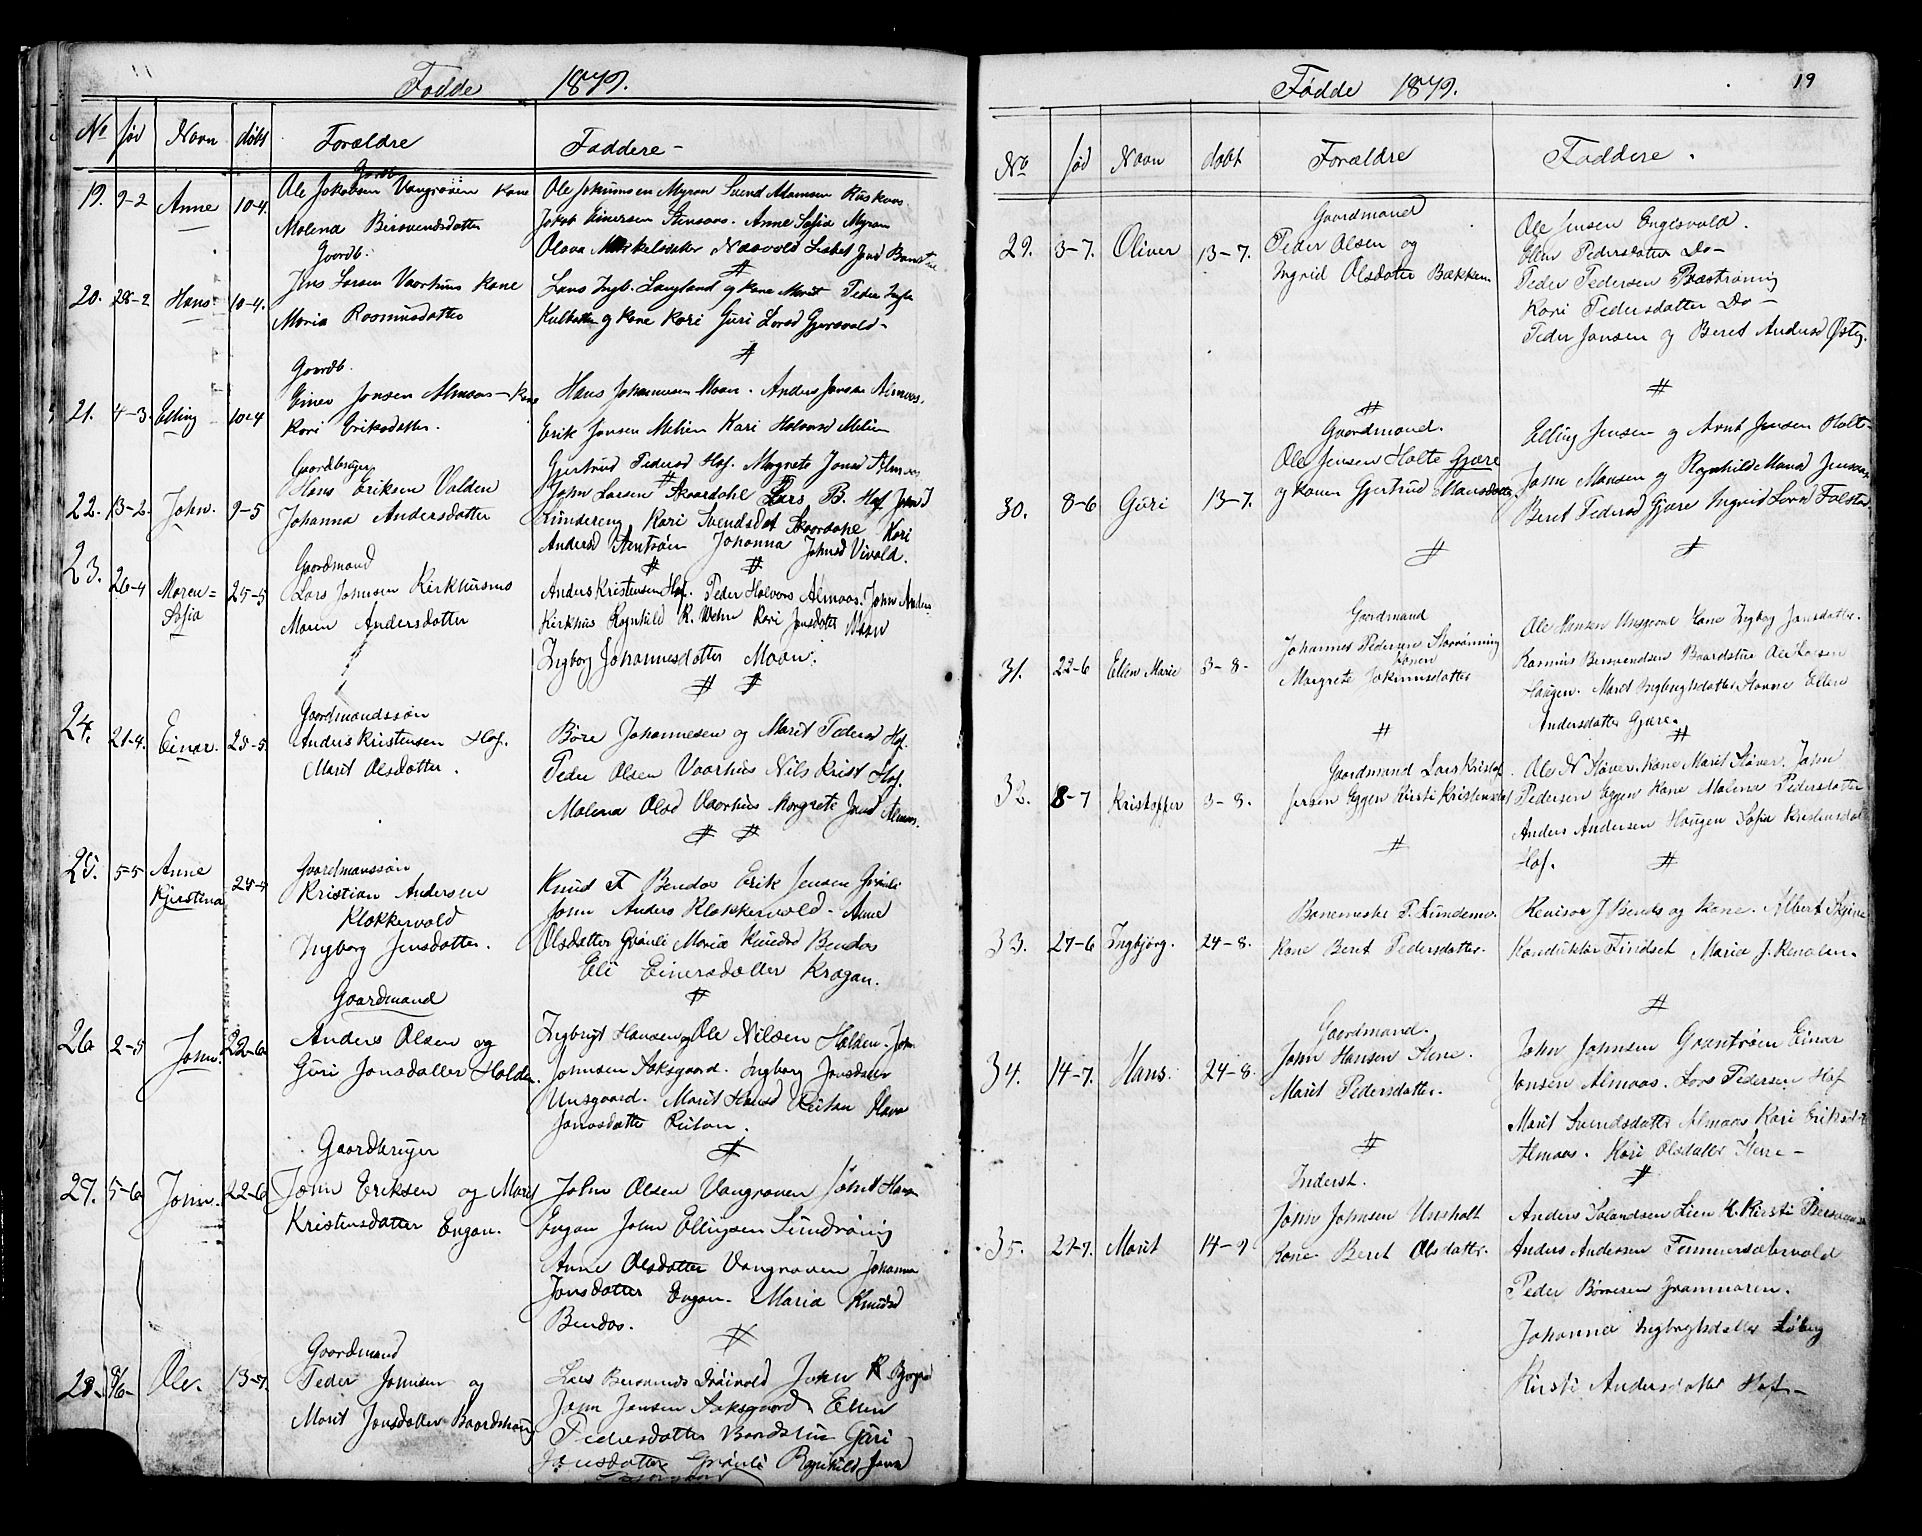 Fødde 1879.
No fød Navn døbt Forældre Faddere -
19. 9-2 Anne 10-4. Gaardb.
Ole Jakobsen Vangrøien Kone
Malena Bersvendsdatter
Ole Jokumsen Myran Svend Adamsen
Jakob Einersen Stensaas. Anne Sofia Myran
Olava Mikkelsdatter Naavold Lisbet Jonsd
#
20. 28-2 Hans 10-4. Gaardb.
Jens Larsen Vaarhus Kone
Maria Rasmusdatter
Lars Ingb. Langland og Kone Marit Peder Ingb.
og Kone Kari Guri Larsd Gjersvold -
#
21. 4-3. Elling 10-4 Gaardb.
Einer Jonsen Almaas - Kone
Kari Eriksdatter.
Hans Johannesen Moan. Anders Jonsen Almaas.
Erik Jonsen Melien Kari Halvorsd Melien
Gjertrud Pedersd Hof. Margrete Jonsd Almaas
#
22. 13-2. John. 9-5 Gaardbruger
Hans Eriksen Volden
Johanna Andersdatter
John Larsen Skaardahl Lars B. Hof John J
Kundereng Kari Svendsdat Skaardahl Kari
Andersd Johanna Johnsd Vivold.
# #
23. 26-4 Maren=
Sofia 25-5 Gaardmand
Lars Johnsen Kirkhusmo
Maren Andersdatter
Anders Kristensen Hof. Peder Halvors Almaas. John Anders
Kirkhus Ragnhild R. Wehre Kari Jonsdatter Moan
Ingborg Johannesdatter Moan.
# #
24. 21-4. Einar. 25-5. Gaardmandssøn
Anders Kristensen Hof.
Marit Olsdatter.
Børe Johannesen og Marit Pedersd Hof.
Peder Olsen Vaarhus Nils Krist Hof.
Malena Olsd Vaarhus Margrete Jonsd Almaas.
# #
25. 5-5 Anne
Kjerstina 25-5 Gaardmanssøn
Kristian Andersen
Klokkervold
Ingborg Jensdatter.
Knud F Bendos Erik Jensen Grønli
John Anders Klokkervold - Anne
Olsdatter Grønli Maria Knudsd Bendos
Eli Einersdatter Kragan.
#
26 2-5 John. 22-6 Gaardmand
Anders Olsen og
Guri Jonsdatter Holden.
Ingbrigt Hansen og Ole Nilsen Holden. John
Johnsen Aaksgaard. Ingborg Jonsdatter
Unsgaard. Marit Hansd Reitan Olava
Jonasdatter Reitan.
#
27. 5-6 John. 22-6 Gaardbruger
John Eriksen og Marit
Kristensdatter Engan.
John Olsen Vangrøven John Hans
Engan John Ellingsen Sundrøning
Anne Olsdatter Vangrøven Johanna
Jonsdatter Engan. Maria Knudsd
Bendos.
#
28- 8/6- Ole. 13-7. Gaardmand
Peder Johnsen og
Marit Jonsdatter Baardshaug
Lars Bersvends Drøivold John R
John Jensen Aaksgaard Ellen
Pedersdatter Baardstu Guri
Jonsdatter Grønli Ragnhild Jonsd

Fødde 1879.
19
No fød Navn døbt Forældre Faddere.
29. 3-7. Oliver 13-7. Gaardmand
Peder Olsen og
Ingrid Olsdatter Bækken
Ole Jensen Engesvold.
Elen Pedersdatter Do-
Peder Pedersen Præstrøning
Kari Pedersdatter Do-
Peder Jonsen og Beret Andersd Østby
#
30. 8-6 Guri 13-7. #
Gaardmand.
Ole Jensen Holte Gjære
og Konen Gjertrud Hansdatter
Elling Jensen og Arnt Jensen Holte-
John Hansen og Ragnhild Hansd
Beret Pedersd Gjære Ingrid Larsd Folstad
# #
31. 22-6 Ellen Marie 3-8. Gaardmand
Johannes Pedersen Storrønning
Konen
Margrete Jokimsdatter
Ole Hansen Unsgaard Kone Ingborg Jonsdatter.
Rasmus Bersvendsen Baardstue Ole Larsen
Haugen. Marit Ingbrigtsdatter Ellen
Andersdatter Gjære.
# #
32. 8-7 Kristoffer 3-8. Gaardmand Lars Kristof
Jersen Eggen Kirsti Kristensdat
Ole N Støver. Kone Marit Støver. John
Pedersen Eggen Kone Malena Pedersdatter
Anders Andersen Haugen Sofia Kristensdatter
Hof.
# #
33. 27-6 Ingbjørg. 24-8. Banemester P. Sundemo.
Kone Beret Pedersdatter.
Revisor J Bends og Kone. Albert
Konduktør Findset Maria J. Renolen.
#
34. 14-7. Hans. 24-8. Gaardmand.
John Hansen Stene.
Marit Pedersdatter.
John Johnsen Grøntrøen Einar
Jonsen Almaas. Lars Pedersen Hof
Marit Svendsdatter Almaas Kari Eriksdat
Almaas. Kari Olsdatter Stene -
# #
35. 29-7. Marit 14-9 Inderst.
John Johnsen Unsholt
Kone Beret Olsdatter.
Anders Tolandsen Lien K. Kirsti Bersvensd
Anders Andersen
Peder Børresen Grammaren.
Johanna Ingbrigtsdatter
Kirsti Andersdatter Hof -